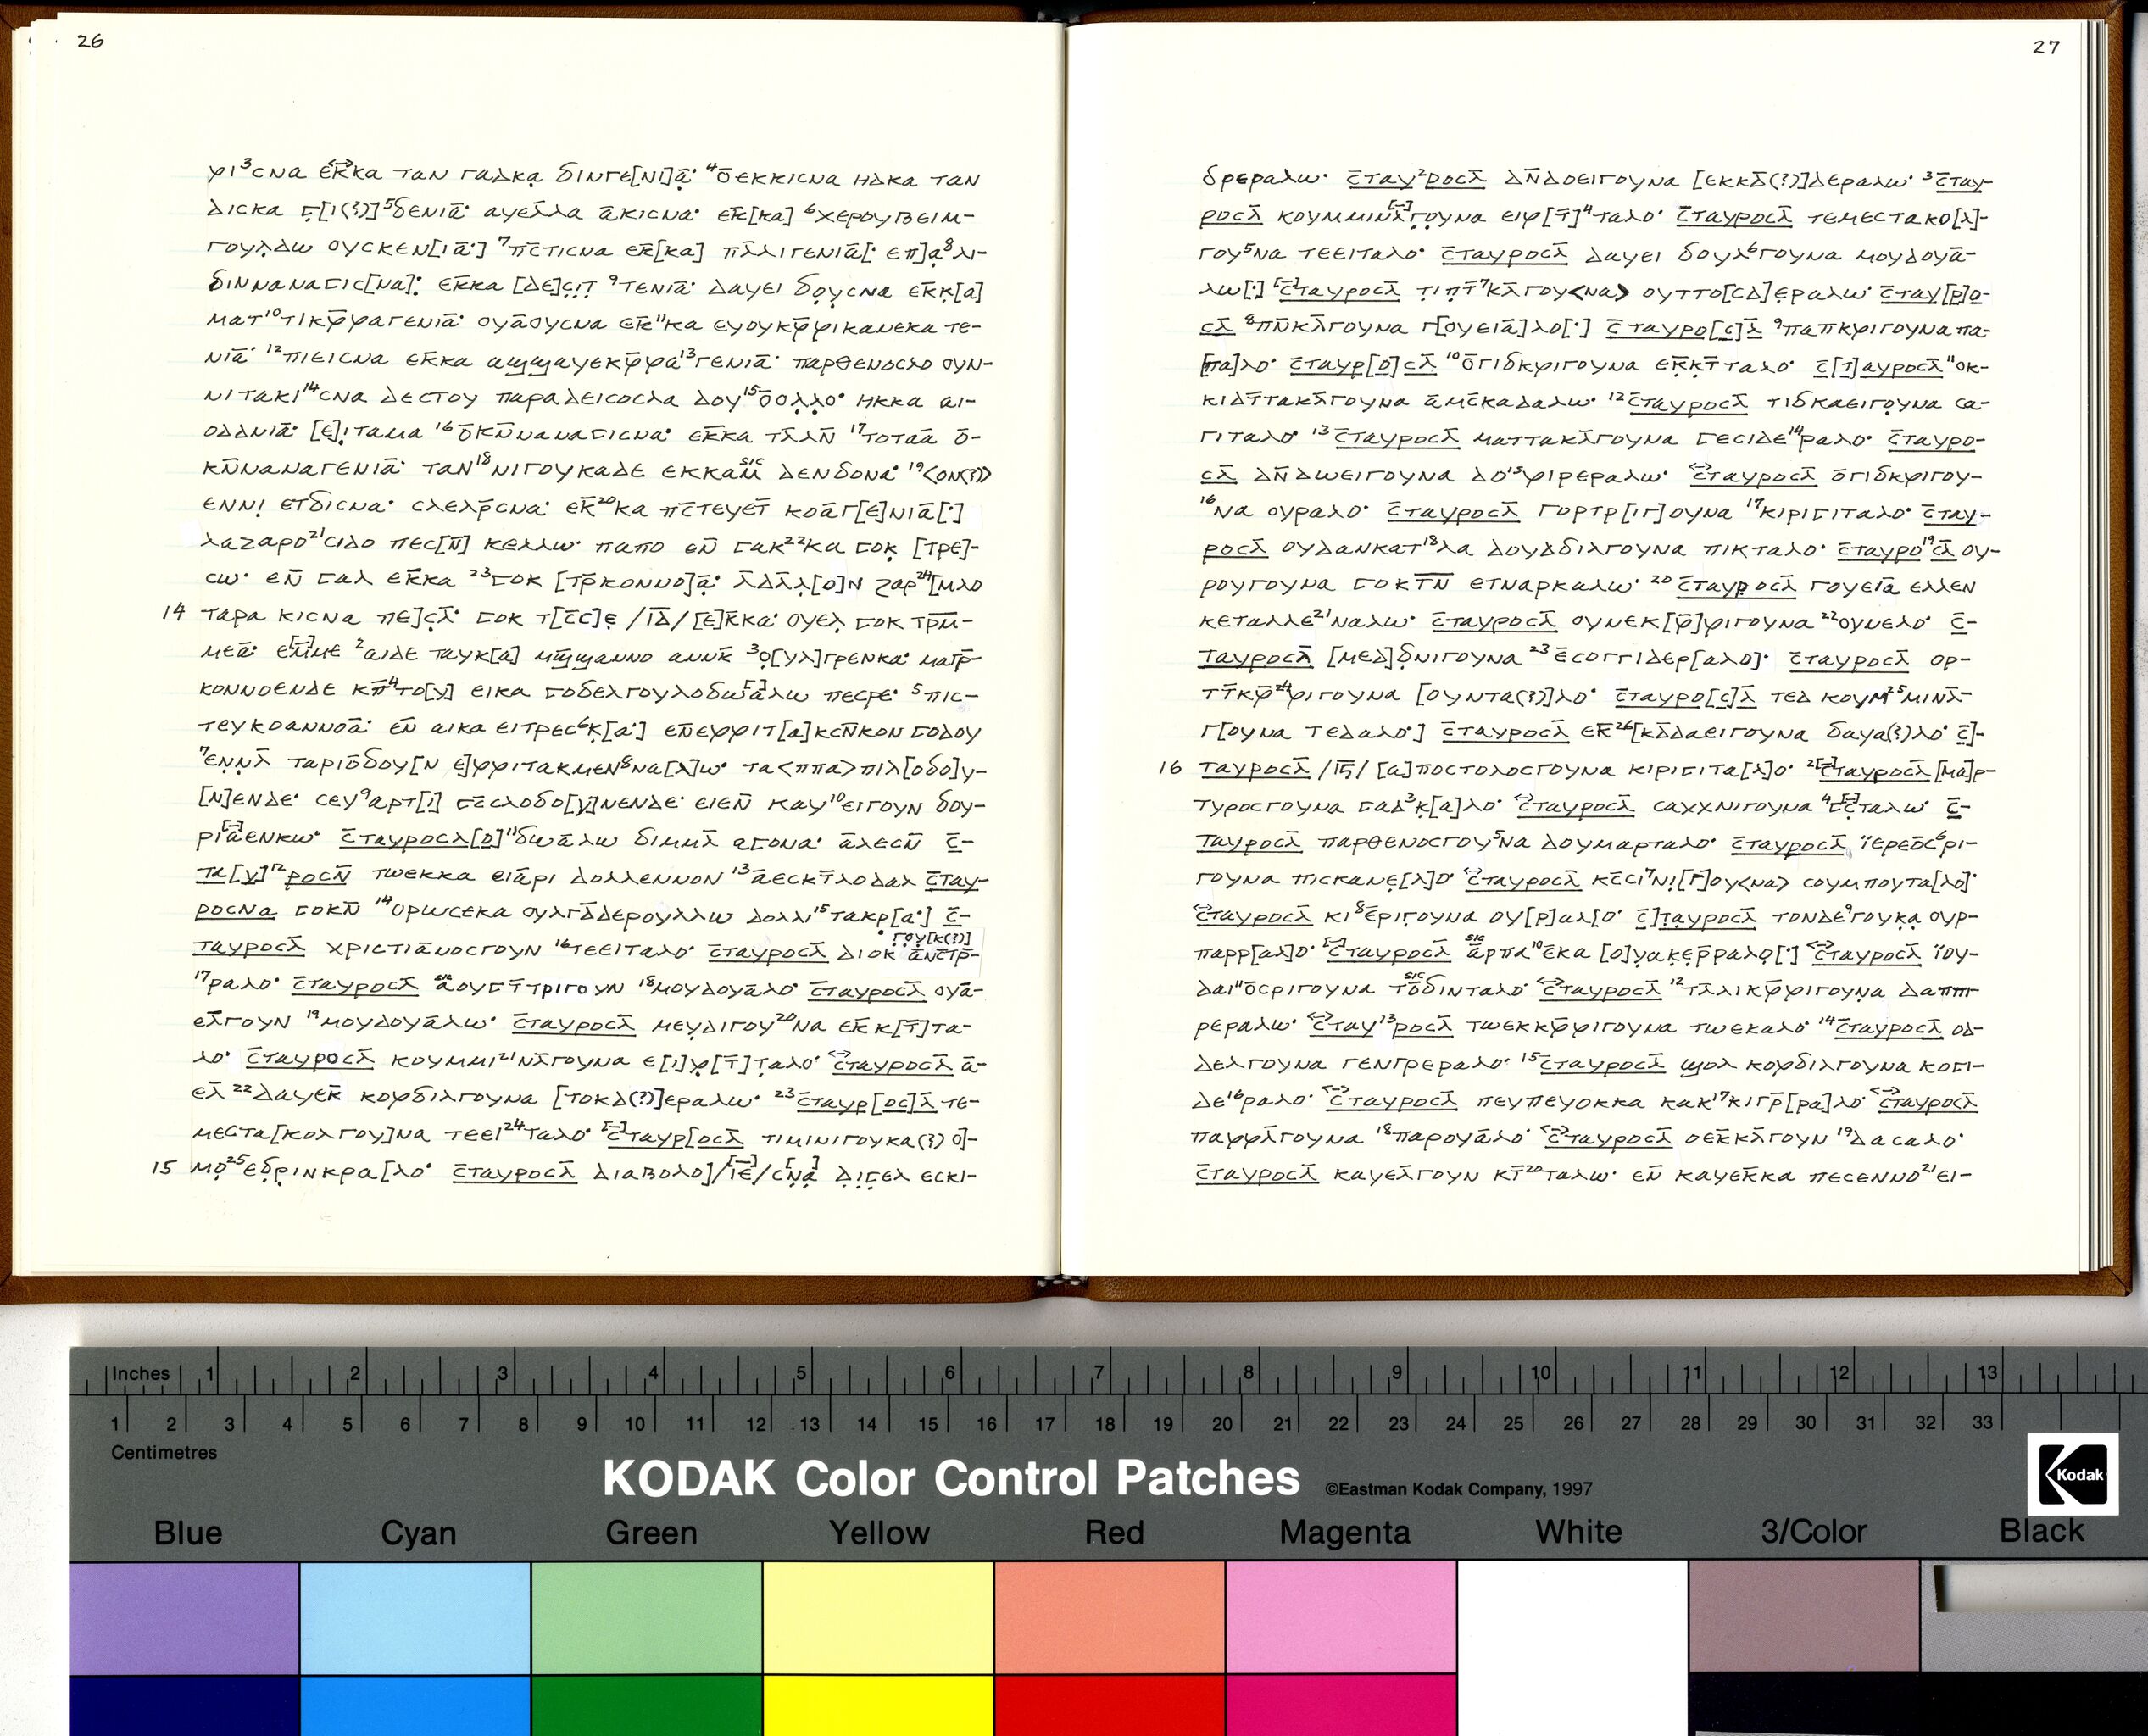 26
ⳡⲓ³ⲥⲛⲁ ⲉ̄ⲕ̄ⲕⲁ ⲧⲁⲛ ⲅⲁⲇⲕⲁ̣ ⳝⲓⲛⲅⲉ[ⲛⲓ]ⲁ̣̄· ⁴ⲟ̄ⲉⲕⲕⲓⲥⲛⲁ ⲏⲇⲕⲁ ⲧⲁⲛ
ⲇⲓⲥⲕⲁ ⳟ̣[ⲓ(?)]⁵ⳝⲉⲛⲓⲁ̄· ⲁⲩⲉⲗ̄ⲗⲁ ⲁ̄ⲕⲓⲥⲛⲁ· ⲉⲕ̄[ⲕⲁ] ⁶ⲭⲉⲣⲟⲩⲃⲉⲓⲙ-
ⲅⲟⲩⲗ̣ⲇⲱ ⲟⲩⲥⲕⲉⲛ[ⲓⲁ̄·] ⁷ⲡ̄ⲥⲧⲓⲥⲛⲁ ⲉⲕ̄[ⲕⲁ] ⲡⲗ̄ⲗⲓⲅⲉⲛⲓⲁ̄[· ⲉⲡ]ⲁ̣⁸ⲗⲓ-
ⳝⲓⲛⲛⲁⲛⲁⳟⲓⲥ[ⲛⲁ]· ⲉⲕ̄ⲕⲁ [ⲇⲉ]ⲥ̣ⲓ̣ⲧ̄ ⁹ⲧⲉⲛⲓⲁ̄· ⲇⲁⲩⲉⲓ ⳝⲟ̣ⲩⲥⲛⲁ ⲉⲕ̄ⲕ̣[ⲁ]
ⲙⲁⲧ¹⁰ⲧⲓⲕⳡ̄ⳡⲁⲅⲉⲛⲓⲁ̄· ⲟⲩⲁ̄ⲟⲩⲥⲛⲁ ⲉⲕ̄¹¹ⲕⲁ ⲉⲩⲟⲩⲕⳡ̄ⳡⲓⲕⲁⲛⲉⲕⲁ ⲧⲉ-
ⲛⲓⲁ̄· ¹²ⲡⲓⲉⲓⲥⲛⲁ ⲉⲕ̄ⲕⲁ ⲁϣϣⲁⲩⲉⲕⳡ̄ⳡⲁ̄¹³ⲅⲉⲛⲓⲁ̄· ⲡⲁⲣⲑⲉⲛⲟⲥⲗⲟ ⲟⲩⲛ-
ⲛⲓⲧⲁⲕⲓ¹⁴ⲥⲛⲁ ⲇⲉⲥⲧⲟⲩ ⲡⲁⲣⲁⲇⲉⲓⲥⲟⲥⲗⲁ ⲇⲟⲩ¹⁵ⲟ̄ⲟⲗ̣ⲗ̣ⲟ· ⲏⲕⲕⲁ ⲁⲓ-
ⲟⲇⲇⲛⲓⲁ̄· [ⲉ]ⲓ̣ⲧⲁⲙⲁ ¹⁶ⲟ̄ⲕⲛ̄ⲛⲁⲛⲁⳟⲓⲥⲛⲁ· ⲉⲕ̄ⲕⲁ ⲧⲗ̄ⲗⲛ̄ ¹⁷ⲧⲟⲧⲁ̄ⲁ̄ ⲟ̄-
ⲕⲛ̄ⲛⲁⲛⲁⲅⲉⲛⲓⲁ̄· ⲧⲁⲛ¹⁸ⲛⲓⲅⲟⲩⲕⲁⲇⲉ ⲉⲕⲕⲁⲙ̄ ⲇⲉⲛⳝⲟⲛⲁ· ¹⁹<ⲟⲛ(?)>
ⲉⲛⲛⲓ̣ ⲉⲧⳝⲓⲥⲛⲁ· ⲥⲗⲉⲗⲣ̄ⲥⲛⲁ· ⲉⲕ̄²⁰ⲕⲁ ⲡ̄ⲥⲧⲉⲩⲉⲧ̄ ⲕⲟⲁ̄ⲅ[ⲉ]ⲛⲓⲁ̄[·]
ⲗⲁⲍⲁⲣⲟ²¹ⲥⲓⲇⲟ ⲡⲉⲥ[ⲛ̄] ⲕⲉⲗⲗⲱ· ⲡⲁⲡⲟ ⲉⲛ̄ ⳟⲁⲕ²²ⲕⲁ ⳟⲟⲕ̣ [ⲧⲣⲉ]-
ⲥⲱ· ⲉⲛ̄ ⳟⲁⲗ ⲉⲕ̄ⲕⲁ ²³ⳟⲟⲕ [ⲧⲣ̄ⲕⲟⲛⲛⲟ]ⲁ̣̄· ⲗ̄ⲇⲗ̄ⲗ̣[ⲟ]ⲛ ⲍⲁⲣ²⁴[ⲙⲗⲟ
14 ⲧⲁⲣⲁ ⲕⲓⲥⲛⲁ ⲡⲉ]ⲥ̣ⲗ̄· ⳟⲟⲕ ⲧ[ⲥ̄ⲥ]ⲉ̣ /ⲓ̄ⲇ̄/ [ⲉ]ⲕ̄ⲕⲁ· ⲟⲩⲉⲗ ⳟⲟⲕ ⲧⲣ̄ⲙ̄-
ⲙⲉⲁ̄· ⲉⲙ̄ⲙⲉ ²ⲁⲓⲇⲉ ⲧⲁⲩⲕ[ⲁ] ⲙϣ̄ϣⲁⲛⲛⲟ ⲁⲛⲛⲕ̄ ³ⲟ̣[ⲩⲗ]ⲅⲣⲉⲛⲕⲁ· ⲙⲁⲧ̄ⲣ̄-
ⲕⲟⲛⲛⲟⲉⲛⲇⲉ ⲕⲡ̄⁴ⲧⲟ[ⲩ] ⲉⲓⲕⲁ ⳟⲟⳝⲉⲗⲅⲟⲩⲗⲟⳝⲱⲁ̄ⲗⲱ ⲡⲉⲥⲣⲉ· ⁵ⲡⲓⲥ-
ⲧⲉⲩⲕⲟⲁⲛⲛⲟⲁ̄· ⲉⲛ̄ ⲁⲓⲕⲁ ⲉⲓⲧⲣⲉⲥ⁶ⲕ̣[ⲁ·] ⲉⲛ̄ⲉⳡⳡⲓⲧ[ⲁ]ⲕⲥⲛ̄ⲕⲟⲛ ⳟⲟⲇⲟⲩ
⁷ⲉⲛ̣ⲛ̣ⲗ̄ ⲧⲁⲣⲓⲟ̄ⳝⲟⲩ[ⲛ ⲉ]ⳡⳡⲓⲧⲁⲕⲙⲉⲛ⁸ⲛⲁ[ⲗ]ⲱ· ⲧⲁ<ⲡⲡⲁ>ⲡⲓⲗ[ⲟⳝⲟ]ⲩ-
[ⲛ]ⲉⲛⲇⲉ· ⲥⲉⲩ⁹ⲁⲣⲧ[ⲓ] ⳟⲥ̄ⲥⲗⲟⳝⲟ[ⲩ]ⲛⲉⲛⲇⲉ· ⲉⲓⲉⲛ̄ ⲕⲁⲩ¹⁰ⲉⲓⲅⲟⲩⲛ ⳝⲟⲩ-
ⲣⲓⲁ̄ⲉⲛⲕⲱ· ⲥ̄ⲧⲁⲩⲣⲟⲥⲗ[ⲟ]¹¹ⳝⲱⲁ̄ⲗⲱ ⳝⲓⲙⲙⲗ̄ ⲁⳟⲟⲛⲁ· ⲁ̄ⲗⲉⲥⲛ̄ ⲥ̄-
ⲧⲁ[ⲩ]¹²ⲣⲟⲥⲛ̄ ⲧⲱⲉⲕⲕⲁ ⲉⲓⲁ̄ⲣⲓ ⲇⲟⲗⲗⲉⲛⲛⲟⲛ ¹³ⲁ̄ⲉⲥⲕⲧ̄ⲗⲟⲇⲁⲗ ⲥ̄ⲧⲁⲩ-
ⲣⲟⲥⲛⲁ ⳟⲟⲕⲛ̄ ¹⁴ⲟⲣⲱⲥⲉⲕⲁ ⲟⲩⲗⲅⲇ̄ⲇⲉⲣⲟⲩⲗⲗⲱ ⲇⲟⲗⲗⲓ¹⁵ⲧⲁⲕⲣ[ⲁ·] ⲥ̄-
ⲧⲁⲩⲣⲟⲥⲗ̄ ⲭⲣⲓⲥⲧⲓⲁ̄ⲛⲟⲥⲅⲟⲩⲛ ¹⁶ⲧⲉⲉⲓⲧⲁⲗⲟ· ⲥ̄ⲧⲁⲩⲣⲟⲥⲗ̄ ⲇⲓⲟⲕ
¹⁷ⲣⲁⲗⲟ· ⲥ̄ⲧⲁⲩⲣⲟⲥⲗ̄ ⲁ̄ⲟⲩⳟⲧ̄ⲧⲣⲓⲅⲟⲩⲛ ¹⁸ⲙⲟⲩⲇⲟⲩⲁ̄ⲗⲟ· ⲥ̄ⲧⲁⲩⲣⲟⲥⲗ̄ ⲟⲩⲁ̄-
ⲉⲗ̄ⲅⲟⲩⲛ ¹⁹ⲙⲟⲩⲇⲟⲩⲁ̄ⲗⲱ· ⲥ̄ⲧⲁⲩⲣⲟⲥⲗ̄ ⲙⲉⲩⲇⲓⲅⲟⲩ²⁰ⲛⲁ ⲉⲕ̄ⲕ[ⲧ̄]ⲧⲁ-
ⲗⲟ· ⲥ̄ⲧⲁⲩⲣⲟⲥⲗ̄ ⲕⲟⲩⲙⲙⲓ²¹ⲛⲗ̄ⲅⲟⲩⲛⲁ ⲉ[ⲓ]ⳡ̣[ⲧ̄]ⲧ̣ⲁⲗⲟ· ⲥ̄ⲧⲁⲩⲣⲟⲥⲗ̄ ⲁ̄-
ⲉⲗ̄ ²²ⲇⲁⲩⲉⲕ̄ ⲕⲟⳡⳝⲓⲗⲅⲟⲩⲛⲁ [ⲧⲟⲕⲇ(?)]ⲉⲣⲁⲗⲱ· ²³ⲥ̄ⲧⲁⲩⲣ[ⲟⲥ]ⲗ̄ ⲧⲉ-
ⲙⲉⲥⲧⲁ[ⲕⲟⲗⲅⲟⲩ]ⲛⲁ ⲧⲉⲉⲓ²⁴ⲧⲁⲗⲟ· ⲥ̄ⲧⲁⲩⲣ[ⲟⲥⲗ̄ ⲧⲓⲙⲓⲛⲓⲅⲟⲩⲕⲁ(?) ⲟ]-
15 ⲙⲟ̣²⁵ⲉⳝ̣ⲣ̣ⲓⲛⲕⲣⲁ[ⲗⲟ· ⲥ̄ⲧⲁⲩⲣⲟⲥⲗ̄ ⲇⲓⲁⲃⲟⲗⲟ]/ⲓ̄ⲉ̄/ⲥⲛ̣ⲁ̣ ⲇ̣ⲓ̣ⳟ̣ⲉⲗ ⲉⲥⲕⲓ-
27
ⳝⲣⲉⲣⲁⲗⲱ· ⲥ̄ⲧⲁⲩ²ⲣⲟⲥⲗ̄ ⲇⲛ̄ⲇⲟⲉⲓⲅⲟⲩⲛⲁ [ⲉⲕⲕⲇ̄(?)]ⲇⲉⲣⲁⲗⲱ· ³ⲥ̄ⲧⲁⲩ-
ⲣⲟⲥⲗ̄ ⲕⲟⲩⲙⲙⲓⲛⲗ̄ⲅ̣ⲟⲩⲛⲁ ⲉⲓⳡ[ⲧ̄]⁴ⲧⲁⲗⲟ· ⲥ̄ⲧⲁⲩⲣⲟⲥⲗ̄ ⲧⲉⲙⲉⲥⲧⲁⲕⲟ[ⲗ]-
ⲅⲟⲩ⁵ⲛⲁ ⲧⲉⲉⲓⲧⲁⲗⲟ· ⲥ̄ⲧⲁⲩⲣⲟⲥⲗ̄ ⲇⲁⲩⲉⲓ ⳝⲟⲩⲗ⁶ⲅⲟⲩⲛⲁ ⲙⲟⲩⲇⲟⲩⲁ̄-
ⲗⲱ[·] ⲥ̄ⲧⲁⲩⲣⲟⲥⲗ̄ ⲧ̣ⲓⲡ̣ⲧ̄⁷ⲕⲗ̄ⲅⲟⲩ<ⲛⲁ> ⲟⲩⲧⲧⲟ[ⲥⲇ]ⲉ̣ⲣⲁⲗⲱ· ⲥ̄ⲧⲁⲩ[ⲣ]ⲟ-
ⲥⲗ̄ ⁸ⲡⲛ̄ⲕⲗ̄ⲅⲟⲩⲛⲁ ⲅ[ⲟⲩⲉⲓⲁ̄]ⲗⲟ[·] ⲥ̄ⲧⲁⲩⲣⲟ[ⲥ]ⲗ̄ ⁹ⲡⲁⲡⲕⳡⲓⲅⲟⲩⲛⲁ ⲡⲁ-
[ⲡⲁ]ⲗⲟ· ⲥ̄ⲧⲁⲩⲣ[ⲟ]ⲥⲗ̄ ¹⁰ⲟ̄ⲅⲓⳝⲕⳡⲓⲅⲟⲩⲛⲁ ⲉⲕ̄ⲕⲧ̄ⲧⲁⲗⲟ· ⲥ̄[ⲧ]ⲁⲩⲣⲟⲥⲗ̄ ¹¹ⲟⲕ-
ⲕⲓⲇⲧ̄ⲧⲁⲕⲗ̄ⲅⲟⲩⲛⲁ ⲁ̄ⲙⲥ̄ⲕⲁⲇⲁⲗⲱ· ¹²ⲥ̄ⲧⲁⲩⲣⲟⲥⲗ̄ ⲧⲓⳝⲕⲁⲉⲓⲅⲟ̣ⲩⲛⲁ ⲥⲁ-
ⲅⲓⲧⲁⲗⲟ· ¹³ⲥ̄ⲧⲁⲩⲣⲟⲥⲗ̄ ⲙⲁⲧⲧⲁⲕⲗ̄ⲅⲟⲩⲛⲁ ⳟⲉⲥⲓⲇⲉ¹⁴ⲣⲁⲗⲟ· ⲥ̄ⲧⲁⲩⲣⲟ-
ⲥⲗ̄ ⲇⲛ̄ⲇⲱⲉⲓⲅⲟⲩⲛⲁ ⲇⲟ¹⁵ⳡⲓⲣⲉⲣⲁⲗⲱ· ⲥ̄ⲧⲁⲩⲣⲟⲥⲗ̄ ⲟ̄ⲅⲓⳝⲕⳡⲓⲅⲟⲩ-
¹⁶ⲛⲁ ⲟⲩⲣⲁⲗⲟ· ⲥ̄ⲧⲁⲩⲣⲟⲥⲗ̄ ⲅⲟⲣⲧⲣ[ⲓⲅ]ⲟⲩⲛⲁ ¹⁷ⲕⲓⲣⲓⳟⲓⲧⲁⲗⲟ· ⲥ̄ⲧⲁⲩ-
ⲣⲟⲥⲗ̄ ⲟⲩⲇⲁⲛⲕⲁⲧ¹⁸ⲗⲁ ⲇⲟⲩⲇⳝⲓⲗⲅⲟⲩⲛⲁ ⲡⲓⲕⲧⲁⲗⲟ· ⲥ̄ⲧⲁⲩⲣⲟ¹⁹ⲥⲗ̄ ⲟⲩ-
ⲣⲟⲩⲅⲟⲩⲛⲁ ⳟⲟⲕⲧ̄ⲛ̄ ⲉⲧⲛⲁⲣⲕⲁⲗⲱ· ²⁰ⲥ̄ⲧⲁⲩⲣⲟⲥⲗ̄ ⲅⲟⲩⲉⲓⲁ̄ ⲉⲗⲗⲉⲛ
ⲕⲉⲧⲁⲗⲗⲉ²¹ⲛⲁⲗⲱ· ⲥ̄ⲧⲁⲩⲣⲟⲥⲗ̄ ⲟⲩⲛⲉⲕ[ⳡ̄]ⳡⲓⲅⲟⲩⲛⲁ ²²ⲟⲩⲛⲉⲗⲟ· ⲥ̄-
ⲧⲁⲩⲣⲟⲥⲗ̄ [ⲙⲉⲇ]ⳝ̣ⲛⲓⲅⲟⲩⲛⲁ ²³ⲉ̄ⲥⲟⲅⲅⲓⲇⲉⲣ[ⲁⲗⲟ]· ⲥ̄ⲧⲁⲩⲣⲟⲥⲗ̄ ⲟⲣ-
ⲧⲧ̄ⲕⳡ̄²⁴ⳡⲓⲅⲟⲩⲛⲁ [ⲟⲩⲛⲧⲁ(?)]ⲗⲟ· ⲥ̄ⲧⲁⲩⲣⲟ[ⲥ]ⲗ̄ ⲧⲉⲇ ⲕⲟⲩⲙ²⁵ⲙⲓⲛⲗ̄-
ⲅ[ⲟⲩⲛⲁ ⲧⲉⲇⲁⲗⲟ·] ⲥ̄ⲧⲁⲩⲣⲟⲥⲗ̄ ⲉⲕ̄²⁶[ⲕⲇ̄ⲇⲁⲉⲓⲅⲟⲩⲛⲁ ⳝⲁⲩⲁ(?)ⲗⲟ· ⲥ̄]-
16 ⲧⲁⲩⲣⲟⲥⲗ̄ /ⲓ̄ⲋ̄/ [ⲁ]ⲡⲟⲥⲧⲟⲗⲟⲥⲅⲟⲩⲛⲁ ⲕⲓⲣⲓⳟⲓⲧⲁ[ⲗ]ⲟ· ²ⲥ̄ⲧⲁⲩⲣⲟⲥⲗ̄ [ⲙⲁ]ⲣ-
ⲧⲩⲣⲟⲥⲅⲟⲩⲛⲁ ⳟⲁⲇ³ⲕ̣[ⲁ]ⲗⲟ· ⲥ̄ⲧⲁⲩⲣⲟⲥⲗ̄ ⲥⲁⲭⲭⲛⲓⲅⲟⲩⲛⲁ ⁴ⳟⲥ̄ⲧⲁⲗⲱ· ⲥ̄-
ⲧⲁⲩⲣⲟⲥⲗ̄ ⲡⲁⲣⲑⲉⲛⲟⲥⲅⲟⲩ⁵ⲛⲁ ⲇⲟⲩⲙⲁⲣⲧⲁⲗⲟ· ⲥ̄ⲧⲁⲩⲣⲟⲥⲗ̄ ⲓ̈ⲉⲣⲉⲟ̄ⲥ⁶ⲣⲓ-
ⲅⲟⲩⲛⲁ ⲡⲓⲥⲕⲁⲛⲉ̣[ⲗ]ⲟ· ⲥ̄ⲧⲁⲩⲣⲟⲥⲗ̄ ⲕⲥ̄ⲥⲓ⁷ⲛⲓ̣[ⲅ]ⲟⲩ<ⲛⲁ> ⲥⲟⲩⲙⲡⲟⲩⲧⲁ[ⲗⲟ]·
ⲥ̄ⲧⲁⲩⲣⲟⲥⲗ̄ ⲕⲓ⁸ⲉ̄ⲣⲓⲅⲟⲩⲛⲁ ⲟⲩ[ⲣ]ⲁⲗ[ⲟ· ⲥ̄]ⲧ̣ⲁⲩⲣⲟⲥⲗ̄ ⲧⲟⲛⲇⲉ⁹ⲅⲟⲩⲕⲁ̣ ⲟⲩⲣ-
ⲡⲁⲣⲣ[ⲁⲗ]ⲟ· ⲥ̄ⲧⲁⲩⲣⲟⲥⲗ̄ ⲁ̄ⲣⲡⲁ¹⁰ⲉ̄ⲕⲁ [ⲟ]ⲩⲁⲕⲉⲣ̄ⲣⲁⲗⲟ[·] ⲥ̄ⲧⲁⲩⲣⲟⲥⲗ̄ ⲓ̈ⲟⲩ-
ⲇⲁⲓ¹¹ⲟ̄ⲥⲣⲓⲅⲟⲩⲛⲁ ⲧⲟ̄ⳝⲓⲛⲧⲁⲗⲟ· ⲥ̄ⲧⲁⲩⲣⲟⲥⲗ̄ ¹²ⲧⲗ̄ⲗⲓⲕⳡ̄ⳡⲓⲅⲟⲩⲛⲁ ⲇⲁⲡⲡⲓ-
ⲣⲉⲣⲁⲗⲱ· ⲥ̄ⲧⲁⲩ¹³ⲣⲟⲥⲗ̄ ⲧⲱⲉⲕⲕⳡ̄ⳡⲓⲅⲟⲩⲛⲁ ⲧⲱⲉⲕⲁⲗⲟ· ¹⁴ⲥ̄ⲧⲁⲩⲣⲟⲥⲗ̄ ⲟⲇ-
ⲇⲉⲗⲅⲟⲩⲛⲁ ⲅⲉⲛⲅⲣⲉⲣⲁⲗⲟ· ¹⁵ⲥ̄ⲧⲁⲩⲣⲟⲥⲗ̄ ϣⲟⲗ ⲕⲟⳡⳝⲓⲗⲅⲟⲩⲛⲁ ⲕⲟⳟⲓ-
ⲇⲉ¹⁶ⲣⲁⲗⲟ· ⲥ̄ⲧⲁⲩⲣⲟⲥⲗ̄ ⲡⲉⲩⲡⲉⲩⲟⲕⲕⲁ ⲕⲁⲕ¹⁷ⲕⲓⲅⲣ̄[ⲣⲁ]ⲗⲟ· ⲥ̄ⲧⲁⲩⲣⲟⲥⲗ̄
ⲡⲁⳡⳡⲗ̄ⲅⲟⲩⲛⲁ ¹⁸ⲡⲁⲣⲟⲩⲁ̄ⲗⲟ· ⲥ̄ⲧⲁⲩⲣⲟⲥⲗ̄ ⲟⲉⲕ̄ⲕⲗ̄ⲅⲟⲩⲛ ¹⁹ⲇⲁⲥⲁⲗⲟ·
ⲥ̄ⲧⲁⲩⲣⲟⲥⲗ̄ ⲕⲁⲩⲉⲗ̄ⲅⲟⲩⲛ ⲕⲧ̄²⁰ⲧⲁⲗⲱ· ⲉⲛ̄ ⲕⲁⲩⲉⲕ̄ⲕⲁ ⲡⲉⲥⲉⲛⲛⲟ²¹ⲉⲓ-
Inches 1 2 3 4 5 6 7 8 9 10 11 12 13
1 2 3 4 5 6 7 8 9 10 11 12 13 14 15 16 17 18 19 20 21 22 23 24 25 26 27 28 29 30 31 32 33
Centimetres
KODAK Color Control Patches ©Eastman Kodak Company, 1997
Kodak
Blue Cyan Green Yellow Red Magenta White 3/Color Black